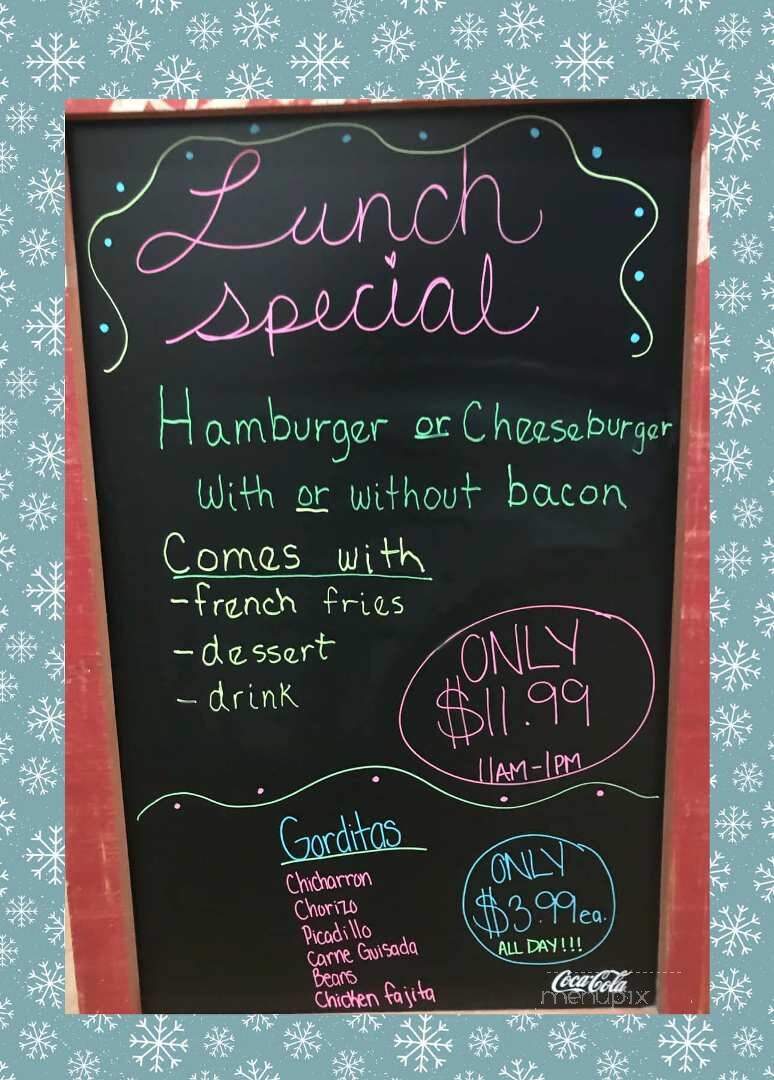 Lunch
special
Hamburger or Cheeseburger
With or without bacon
Comes with
-french fries
-dessert
- drink
ONLY
$11.99
11AM-1PM
Gorditas
Chicharron
Chorizo
Picadillo
Carne Guisada
Beans
Chicken fajita
ONLY
$3.99 ea.
ALL DAY!!!
Coca-Cola
menupix